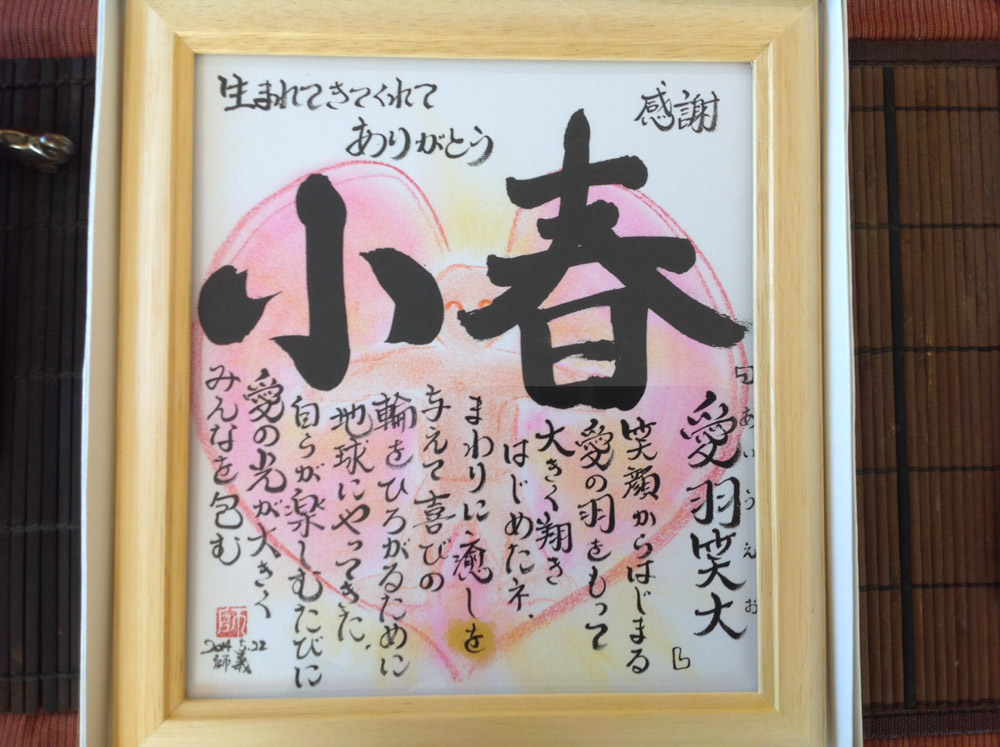 感謝
生まれてきてくれて
ありがとう
小春
愛羽笑大
あいうえお
笑顔からはじまる
愛の羽をもって
大きく翔き
はじめたネ.
まわりに癒しを
与えて喜びの
輪をひろがるために
地球にやってきた.
自らが楽しむたびに
愛の光が大きく
みんなを包む
2014.5.22
師義